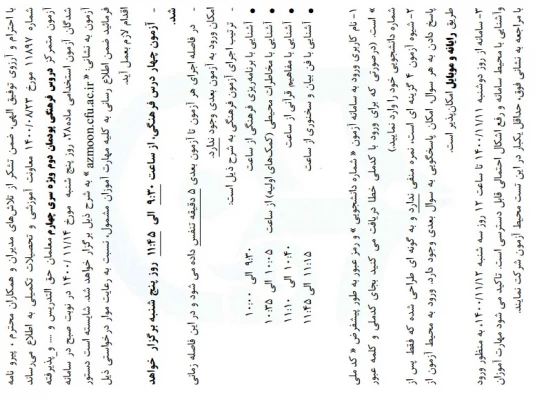 با احترام و آرزوی توفیق الهی، ضمن تشکر از تلاش‌های مدیران و همکاران محترم ، پیرو نامه
شماره ۱۱۸۹۲ مورخ ۱۴۰۰/۰۸/۲۳ معاونت آموزشی و تحصیلات تکمیلی به اطلاع می‌رساند
آزمون متمرکز دروس فرهنگی پودمان دوم ویژه سری چهارم معلمان حق التدریس و .... و پذیرفته
شدگان آزمون استخدامی ماده۲۸، روز پنج شنبه مورخ ۱۴۰۰/۱۱/۱۴ در نوبت صبح در سامانه
آزمون به نشانی: « azmoon.cfu.ac.ir » به شرح ذیل برگزار خواهد شد. شایسته است دستور
فرمائید ضمن اطلاع رسانی به کلیه مهارت آموزان مشمول، نسبت به رعایت موار درخواستی ذیل
اقدام لازم بعمل آید.
- آزمون چهار درس فرهنگی، از ساعت ۹:۳۰ الی ۱۱:۴۵ روز پنج شنبه برگزار خواهد
شد.
- در فاصله اجرای هر آزمون تا آزمون بعدی ۵ دقیقه تنفس داده می شود و در این فاصله زمانی
امکان ورود به آزمون بعدی وجود ندارد.
- ترتیب اجرای آزمون فرهنگی به شرح ذیل است:
• آشنایی با برنامه‌ریزی فرهنگی از ساعت ۹:۳۰ الی ۱۰:۰۰
• آشنایی با مخاطرات محیطی (کمک‌های اولیه) از ساعت ۱۰:۰۵ الی ۱۰:۳۵
• آشنایی با مفاهیم قرآنی از ساعت ۱۰:۴۰ الی ۱۱:۱۰
• آشنایی با فن بیان و سخنوری از ساعت ۱۱:۱۵ الی ۱۱:۴۵
۱- نام کاربری ورود به سامانه آزمون « شماره دانشجویی » و رمز عبور به طور پیشفرض « کد ملی
» است. (درصورتی که برای ورود با کدملی خطا دریافت می کنید بجای کدملی و کلمه عبور
شماره دانشجویی خود را وارد نمایید.)
۲- شیوه آزمون ۴ گزینه ای است، نمره منفی ندارد و به گونه ای طراحی شده که فقط پس از
پاسخ دادن به هر سوال، امکان پاسخگویی به سوال بعدی وجود دارد. ورود به محیط آزمون از
طریق رایانه و موبایل امکان‌پذیر است.
۳- سامانه از روز دوشنبه ۱۴۰۰/۱۱/۱۱ تا ساعت ۱۲ روز سه شنبه ۱۴۰۰/۱۱/۱۲، به منظور ورود
و آشنایی با محیط سامانه و رفع اشکال احتمالی قابل دسترسی است. تاکید می شود مهارت آموزان
با مراجعه به نشانی فوق، حداقل یکبار در این تست محیط آزمون شرکت نمایند.